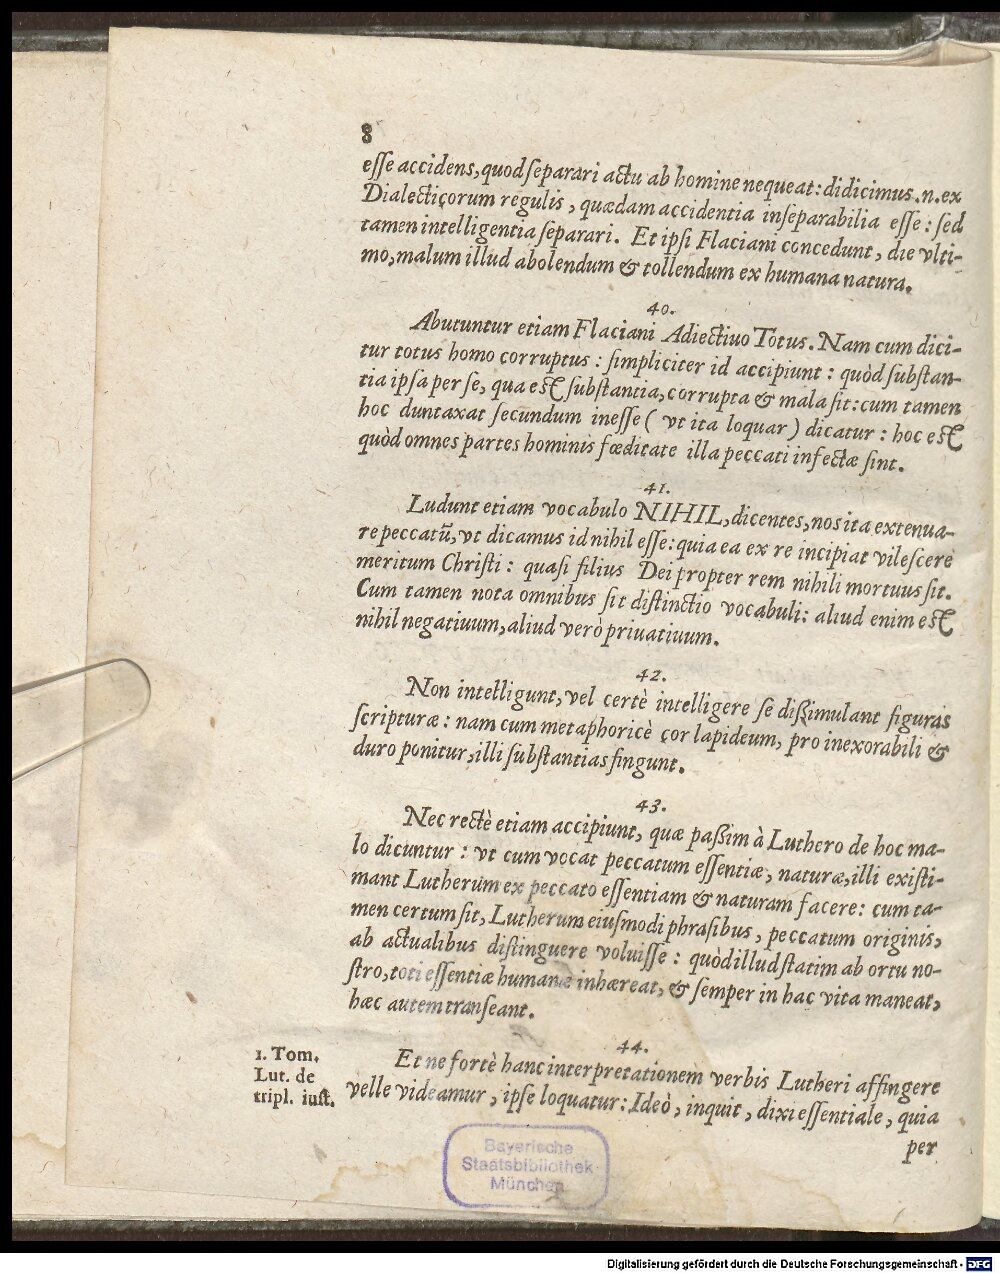 8
esse accidens, quod separari actu ab homine nequeat: didicimus .n. ex
Dialecticorum regulis, quædam accidentia inseparabilia esse: sed
tamen intelligentia separari. Et ipsi Flaciani concedunt, die vlti-
mo, malum illud abolendum & tollendum ex humana natura.
40.
Abutuntur etiam Flaciani Adiectiuo Totus. Nam cum dici-
tur totus homo corruptus: simpliciter id accipiunt: quòd substan-
tia ipsa per se, qua est substantia, corrupta & mala sit: cum tamen
hoc duntaxat secundum inesse (vt ita loquar) dicatur: hoc est
quòd omnes partes hominis fœditate illa peccati infectæ sint.
41.
Ludunt etiam vocabulo NIHIL, dicentes, nos ita extenua-
re peccatũ, vt dicamus id nihil esse: quia ea ex re incipiat vilescere
meritum Christi: quasi filius Dei propter rem nihili mortuus sit.
Cum tamen nota omnibus sit distinctio vocabuli: aliud enim est
nihil negatiuum, aliud verò priuatiuum.
42.
Non intelligunt, vel certè intelligere se dißimulant figuras
scripturæ: nam cum metaphoricè cor lapideum, pro inexorabili &
duro ponitur, illi substantias fingunt.
43.
Nec rectè etiam accipiunt, quæ paßim à Luthero de hoc ma-
lo dicuntur: vt cum vocat peccatum essentiæ, naturæ, illi existi-
mant Lutherum ex peccato essentiam & naturam facere: cum ta-
men certum sit, Lutherum eiusmodi phrasibus, peccatum originis,
ab actualibus distinguere voluisse: quòd illud statim ab ortu no-
stro, toti essentiæ humanæ inhæreat, & semper in hac vita maneat,
hæc autem transeant.
44.
1. Tom.
Lut. de
tripl. iust.
Et ne fortè hanc interpretationem verbis Lutheri affingere
velle videamur, ipse loquatur: Ideò, inquit, dixi essentiale, quia
per
Bayerische
Staatsbibliothek
München
Digitalisierung gefördert durch die Deutsche Forschungsgemeinschaft - DFG